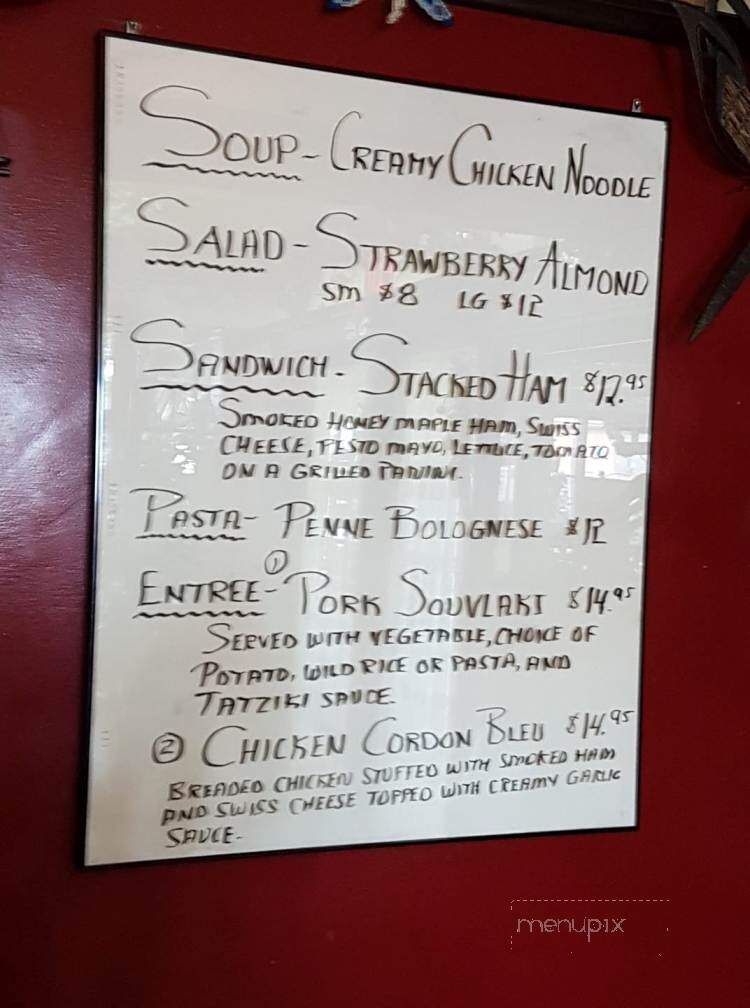 SOUP - CREAMY CHICKEN NOODLE
SALAD - STRAWBERRY ALMOND
SM $8 LG $12
SANDWICH - STACKED HAM $12.95
SMOKED HONEY MAPLE HAM, SWISS
CHEESE, PESTO MAYO, LETTUCE, TOMATO
ON A GRILLED PANINI.
PASTA - PENNE BOLOGNESE $12
ENTREE - ① PORK SOUVLAKI $14.95
SERVED WITH VEGETABLE, CHOICE OF
POTATO, WILD RICE OR PASTA, AND
TATZIKI SAUCE.
② CHICKEN CORDON BLEU $14.95
BREADED CHICKEN STUFFED WITH SMOKED HAM
AND SWISS CHEESE TOPPED WITH CREAMY GARLIC
SAUCE.
menupix